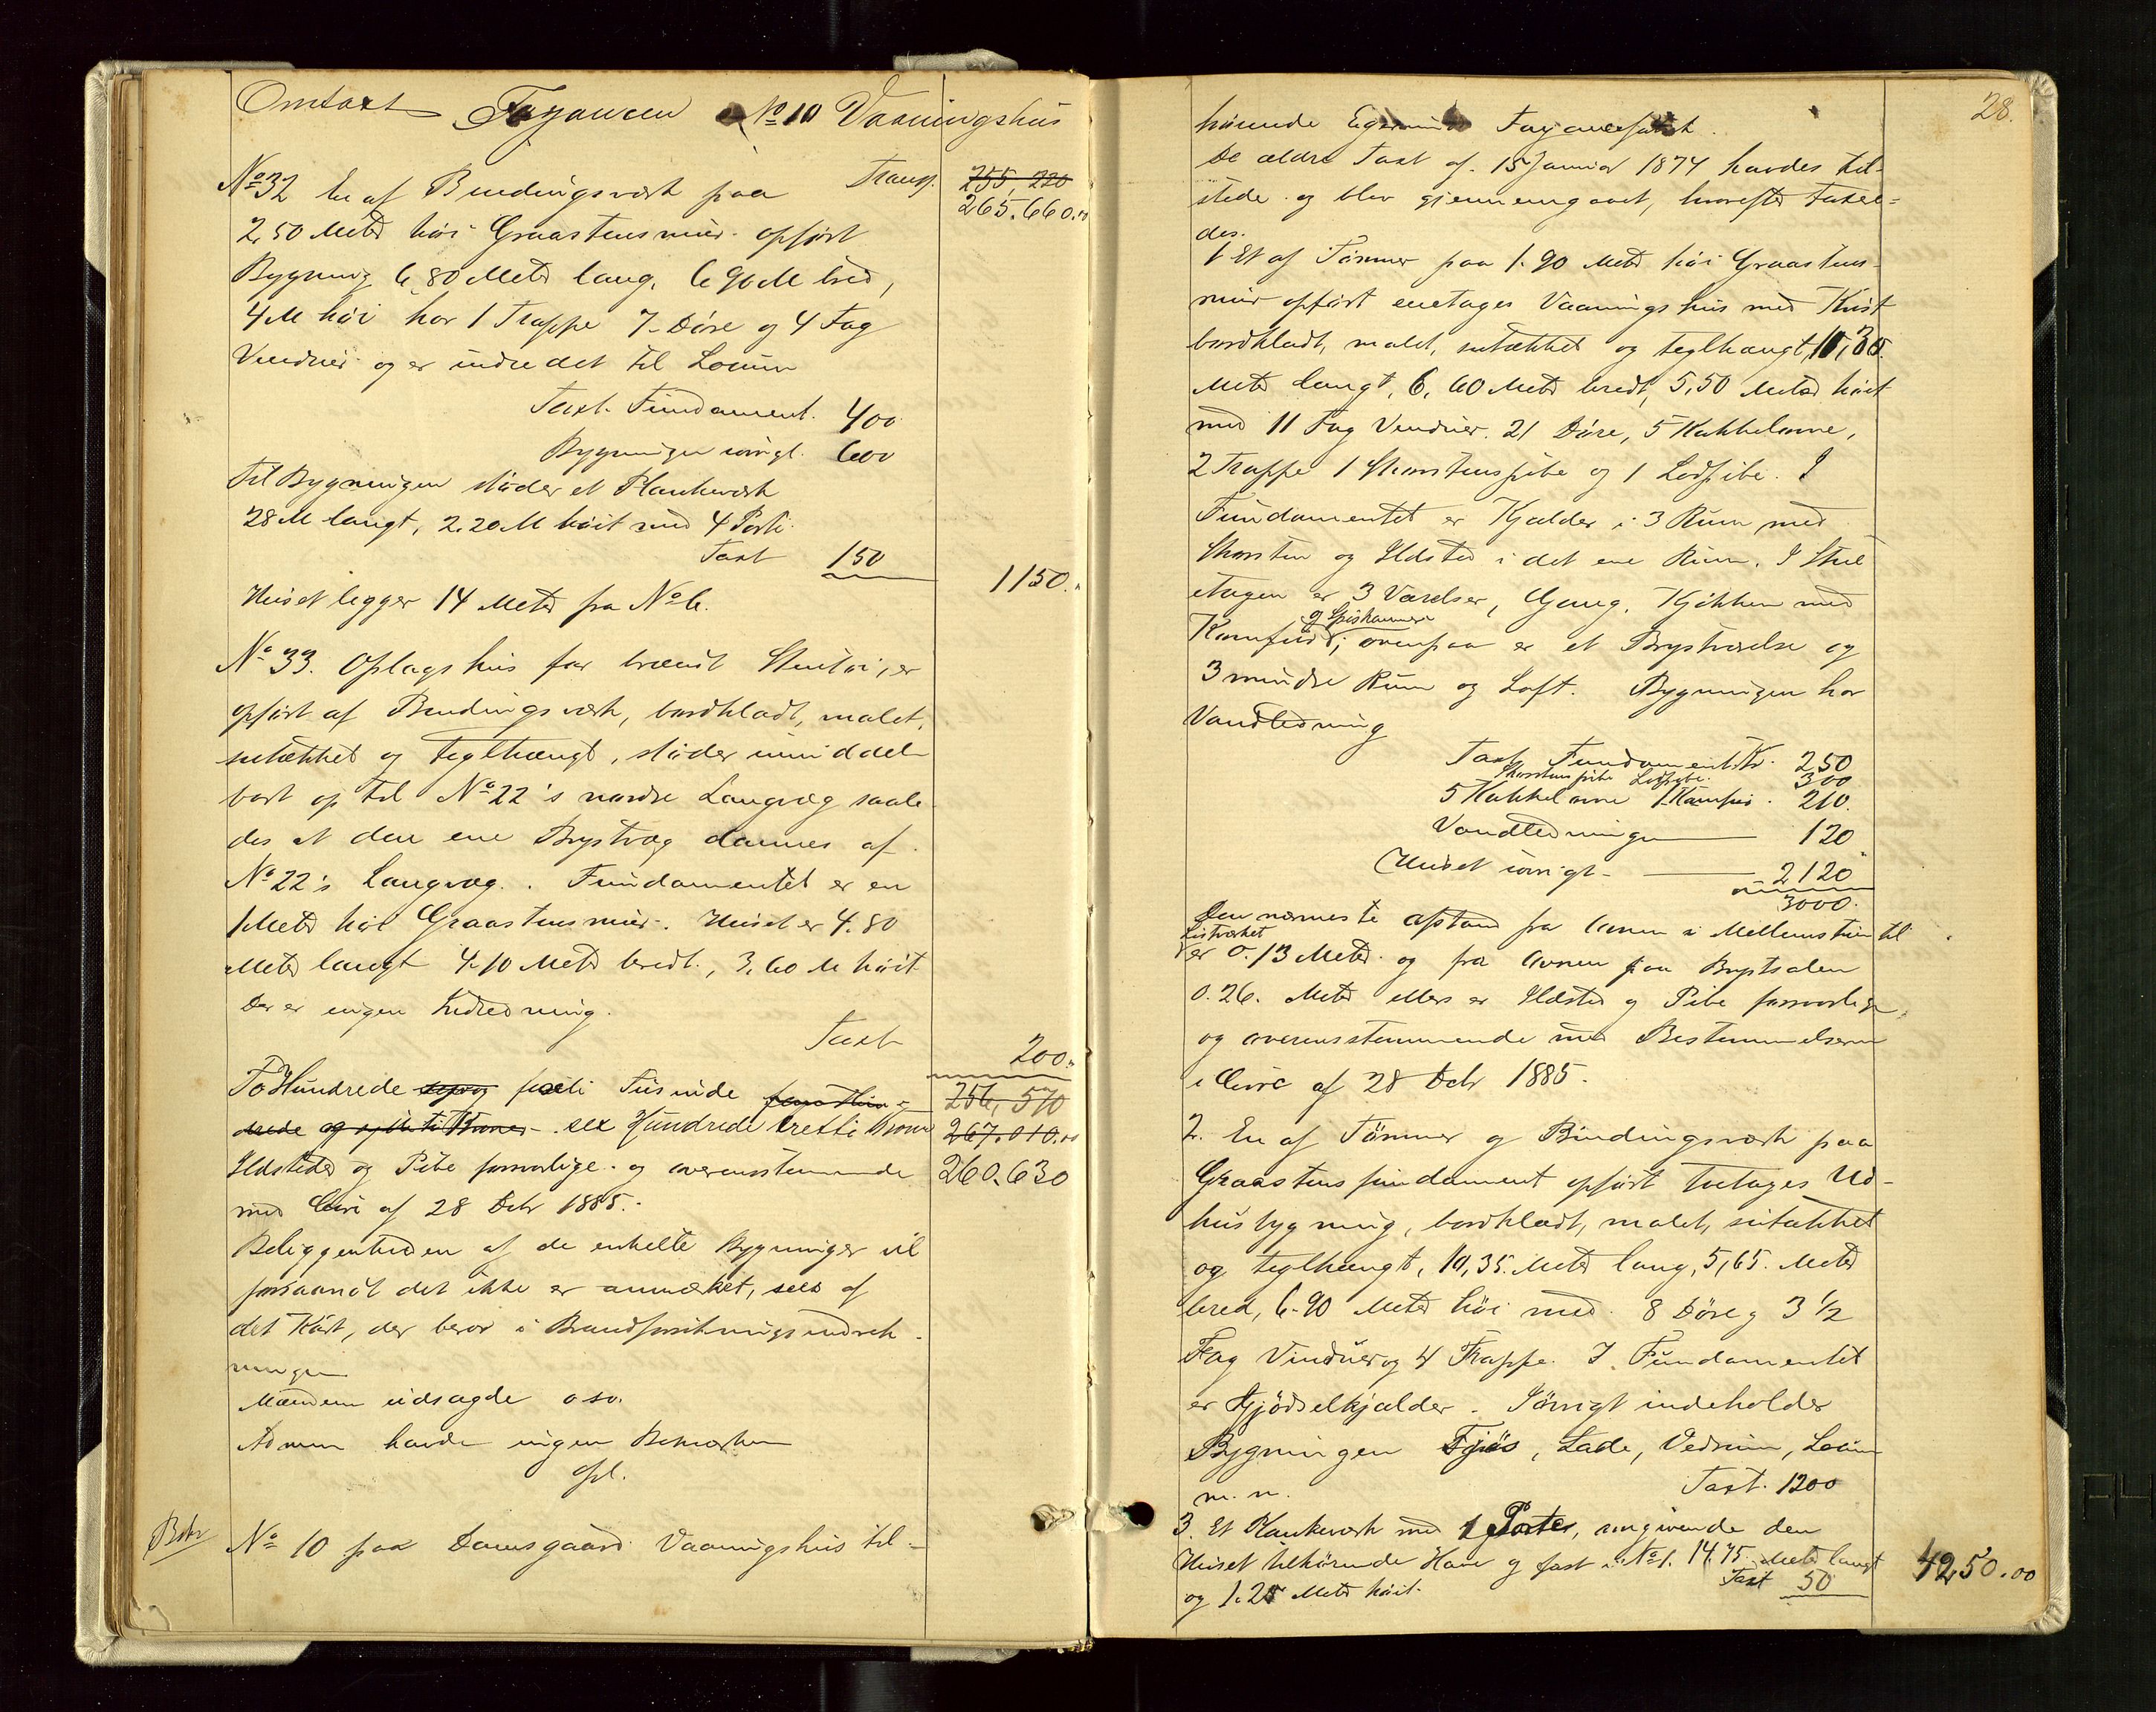 Omtaxt Fayancen No 10 Vaaningshus
No 32 En af Bindingsværk paa Transp. 255,220
265.660.00
2,50 Meter høi Graastensmur opført
Bygning 6,80 Meter lang, 6,90 M bred,
4 M høi har 1 Trappe 7 Døre og 4 Fag
Vinduer og er indredet til Locum
Taxt. Fundament. 400
Bygningen iøvrigt. 600
Til Bygningen støder et Plankeværk
28 M langt, 2.20 M høit med 4 Porte
Taxt 150
1150.
Huset ligger 14 Meter fra No 6.
No 33. Oplagshus for brændt Stentøi, er
opført af Bindingsværk, bordklædt, malet,
sutækket og teglhængt, støder umiddel-
bart op til No 22's nordre Langvæg saale
des at den ene Brystvæg dannes af
No 22's Langvæg. Fundamentet er en
1 Meter høi Graastensmur. Huset er 4.80
Meter langt 4.10 Meter bredt, 3,60 M høit
Der er ingen Indredning.
Taxt 200.
To Hundrede sexti Tusinde
256,570
drede og sytti Kroner sex Hundrede tretti Kroner 267.010.00
Ildsteder og Pibe forsvarlige og overensstemmende 260.630
med Circ af 28 Debr 1885.
Beliggenheden af de enkelte Bygninger vil
forsaavidt det ikke er anmerket, sees af
det Kart, der beror i Brandforsikringsindret-
ningen
Mændene udsagde o.s.v.
Admin havde ingen Bemærkn
Opl.
No 10 paa Damsgaard Vaaningshus til-
28.
hørende Egersunds Fayancefabrik.
De ældre Taxt af 15 Januar 1874 havdes til-
stede og blev gjennemgaaet, hvorefter taxer-
des.
1 Et af Tømmer paa 1.90 Meter høi Graastens-
mur opført enetages Vaaningshus med Kvist
bordklædt, malet, sutækket og teglhængt, 10,30
Meter langt, 6,60 Meter bredt, 5,50 Meter høit
med 11 Fag Vinduer. 21 Døre, 5 Kakkelovne,
2 Trappe 1 Skorstenspibe og 1 Lodpibe. I
Fundamentet er Kjælder i 3 Rum med
Skorsten og Ildsted i det ene Rum. I Stue
etagen er 3 Værelser, Gang, Kjøkken med
og Spiskammer
Komfur; ovenpaa er et Brystværelse og
3 mindre Rum og Loft. Bygningen har
Vandledning
Taxt Fundament Kr. 250
Skorstenspibe Lodpibe. 300
5 Kakkelovne 1 Komfur. 210.
Vandledningen 120
Huset iøvrigt 2120
3000.
Den nærmeste Afstand fra Ovnen i Mellemstuen til
Listværket
er 0.13 Meter og fra Ovnen paa Brystsalen
0.26. Meter ellers er Ildsted og Pibe forsvarlige
og overensstemmende med Bestemmelserne
i Circ af 28 Debr 1885.
2. En af Tømmer og Bindingsværk paa
Graastensfundament opført totages Ud-
husbygning, bordklædt, malet, sutækket
og teglhængt, 10,35 Meter lang, 5,65. Meter
bred, 6.90 Meter høi med 8 Døre og 3 1/2
Fag Vinduer og 4 Trappe. I Fundamentet
er Gjødselkjælder. Iøvrigt indeholder
Bygningen Fjøs, Lade, Vedrum, Locum
m. m. Taxt. 1200
3. Et Plankeværk med 1 Porte, omgivende den
Huset tilhørende Have og fast i No 1. 14.75 Meter langt
og 1.25 Meter høit. Taxt 50
4250.00